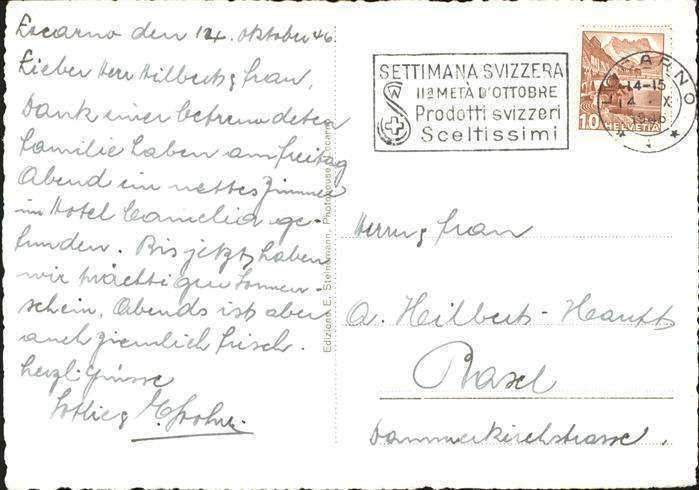 Locarno den 14. Oktober 46
Lieber Herr Hilbert & Frau,
Dank einer befreundeten
Familie haben am Freitag
Abend ein nettes Zimmer
im Hotel Camelia ge-
funden. Bis jetzt haben
wir prächtigen Sonnen-
schein, Abends ist aber
auch ziemlich frisch.
herzl. Grüsse
SETTIMANA SVIZZERA
IIa META D'OTTOBRE
Prodotti svizzeri
Sceltissimi
LOCARNO
14-15
14 X
1946
10 HELVETIA
Herrn & Frau
A. Hilbert-Hauff
Basel
Dammerkirchstrasse.
Edizione E. Steinemann, Photohouse, Locarno